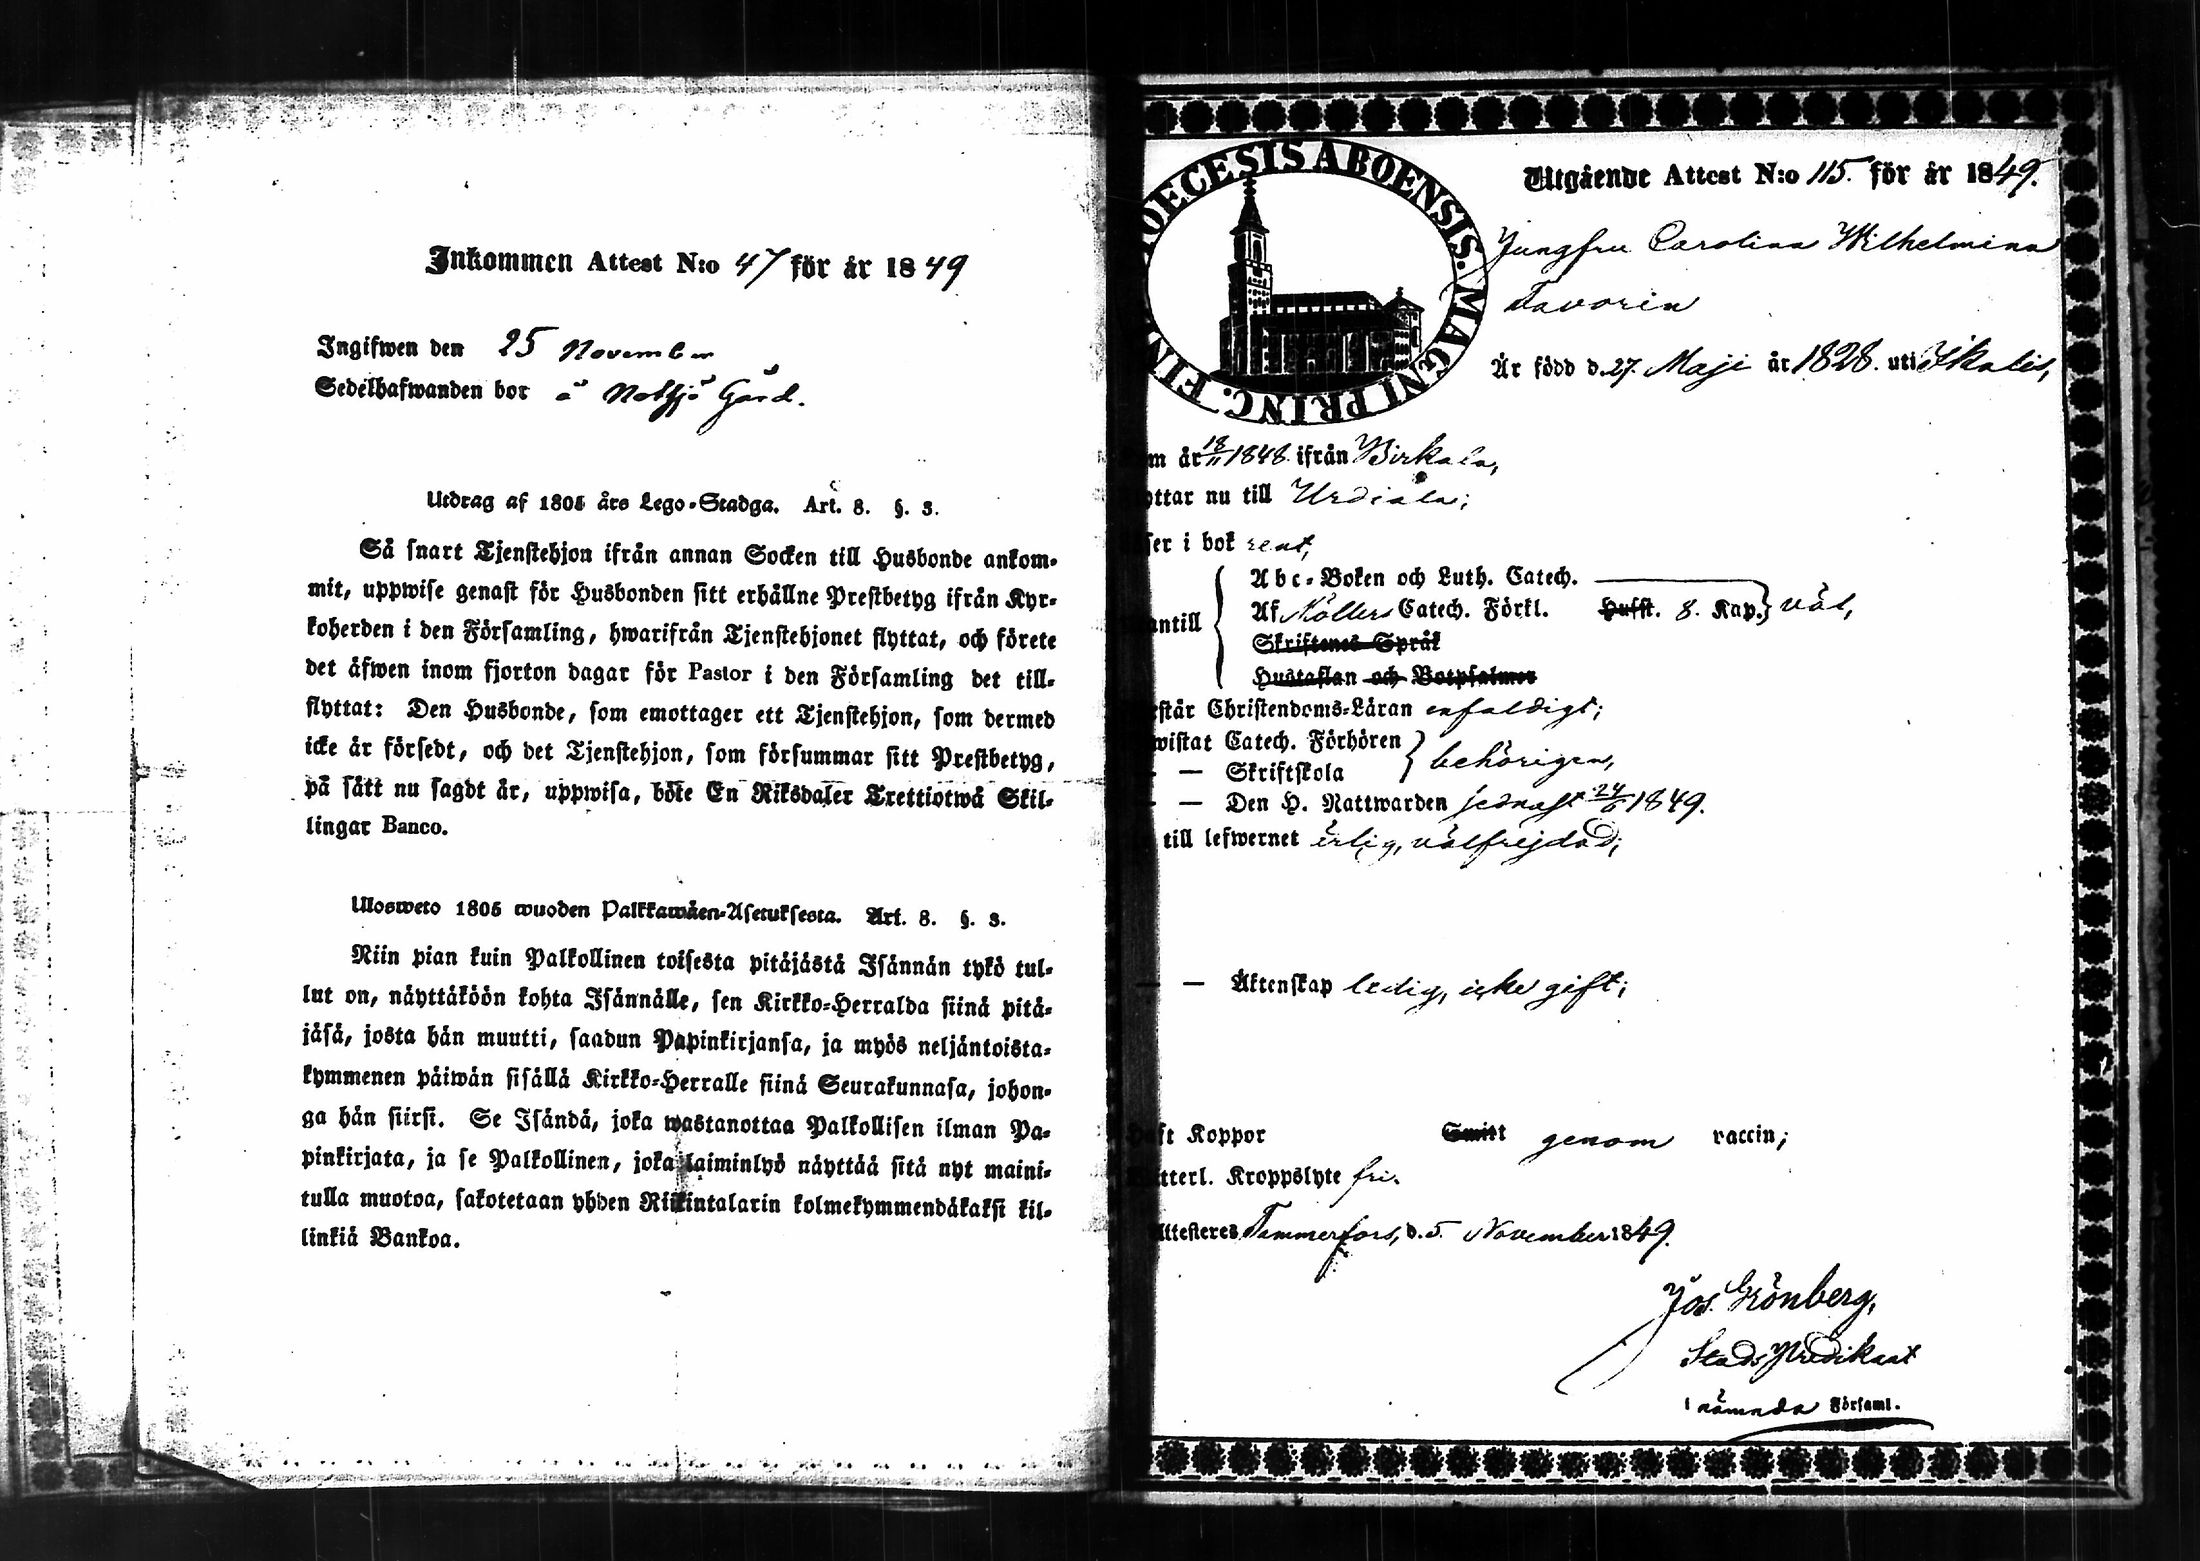 Inkommen Attest N:o 47 för år 1849
Ingifwen den 25 November
Sedelhafwanden bor å Notsjö Gård.
Utdrag af 1805 års Lego-Stadga. Art. 8. §. 3.
Så snart Tjenstehjon ifrån annan Socken till Husbonde ankom-
mit, uppwise genast för Husbonden sitt erhållne Prestbetyg ifrån Kyr-
koherden i den Församling, hwarifrån Tjenstehjonet flyttat, och förete
det äfwen inom fjorton dagar för Pastor i den Församling det till-
flyttat: Den Husbonde, som emottager ett Tjenstehjon, som dermed
icke är försedt, och det Tjenstehjon, som försummar sitt Prestbetyg,
på sätt nu sagdt är, uppwisa, böte En Riksdaler Trettiotwå Skil-
lingar Banco.
Ulosweto 1805 wuoden Palkkawäen-Asetuksesta. Art. 8. §. 3.
Niin pian kuin Palkollinen toisesta pitäjästä Isännän tykö tul-
lut on, näyttäköön kohta Isännälle, sen Kirkko-Herralda siinä pitä-
jäsä, josta hän muutti, saadun Papinkirjansa, ja myös neljäntoista-
kymmenen päiwän sisällä Kirkko-Herralle siinä Seurakunnasa, johon-
ga hän siirsi. Se Isändä, joka wastanottaa Palkollisen ilman Pa-
pinkirjata, ja se Palkollinen, joka laiminlyö näyttää sitä nyt maini-
tulla muotoa, sakotetaan yhden Riikintalarin kolmekymmendäkaksi kil-
linkiä Bankoa.
DIOECESIS ABOENSIS. MAGNI PRINC. FIN
Utgående Attest N:o 115. för år 1849.
Jungfru Carolina Wilhelmina
Tavorin
Är född d. 27. Maji år 1828. uti Ikalis,
om år 18/11 1848. ifrån Birkala,
yttar nu till Urdiala;
ser i bok rent,
antill
Abc-Boken och Luth. Catech.
Af Möllers Catech. Förkl. Hufst. 8. Kap. väl,
Skriftenes Språk
Hustaflan och Botpsalmer
står Christendoms-Läran enfaldigt;
wistat Catech. Förhören
— — Skriftskola behörigen,
— — Den H. Nattwarden sednast 24/6 1849.
till lefwernet ärlig, välfrejdad;
— — Äktenskap ledig, icke gift;
aft Koppor Smitt genom vaccin;
tterl. Kroppslyte fri.
Attesteres Tammerfors, d. 5. November 1849.
Jos. Grönberg,
Stads Predikant
i nämnda Församl.